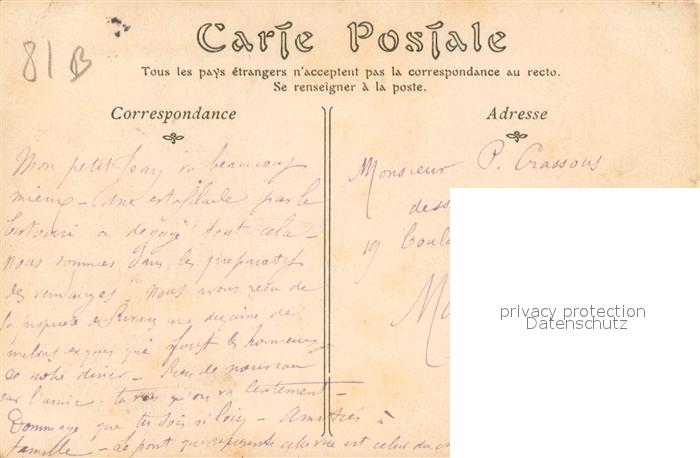 81 B
Carte Postale
Tous les pays étrangers n'acceptent pas la correspondance au recto.
Se renseigner à la poste.
Correspondance
Adresse
Mon petit Jean va beaucoup
mieux – une par le
a dégagé tout cela –
nous sommes dans les préparatifs
des vendanges – nous avons reçu de
la propriété de une dizaine de
melons exquis qui font les honneurs
de notre diner – Rien de nouveau
sur l'usine : tu vois qu'on va lentement –
Dommage que tu sois si loin – Amitiés à
famille – Le pont qui représente cette vue est celui du
Monsieur P. Crassous
dess
19 Boule
Mo
privacy protection
Datenschutz